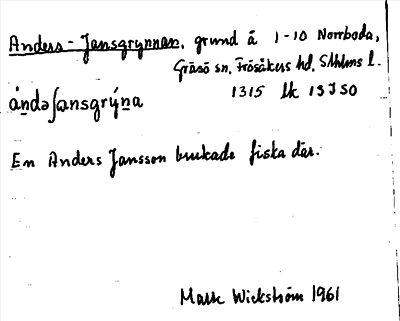 Anders-Jansgrynnan, grund å 1-10 Norrboda,
Gräsö sn, Frösåkers hd, Sthlms l.
ándəʃansgrýn̲a 1315 lk 13J50
En Anders Jansson brukade fiska där.
Wickström 1961